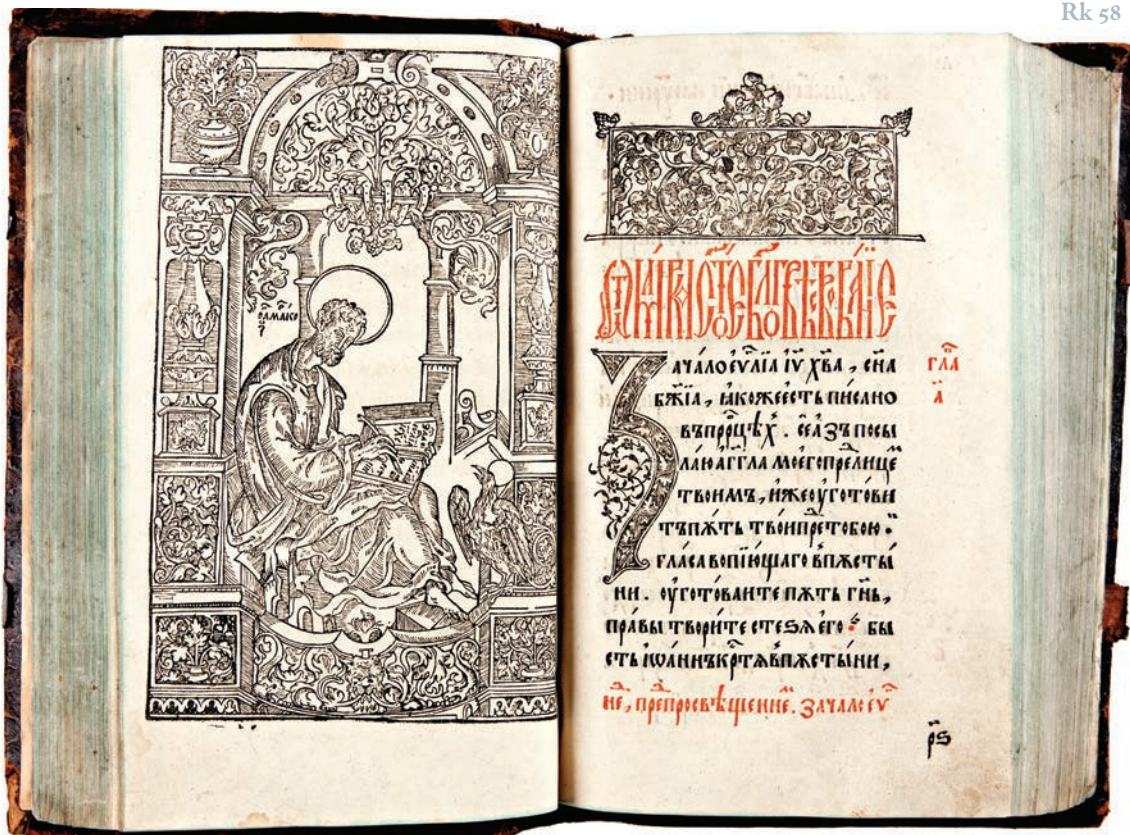 Rk 58
Ѿ МАРКА СТ҃ОЕ БЛГ҃ОВѢСТВОВАНЇЕ
Зача́ло є҆ѵⷢ҇лїа і҆ѵ҃ хв҃а , сн҃а
бж҃їа , ꙗ҆коже есть пи́сано
въ прⷪ҇рⷪ҇цѣⷯ . се а҆зъ посы
лаю а҆г҃гла моего преⷣ лицеⷨ
твоимъ , и҆же оу҆готови
тъ пѫть твои преⷣ тобою :
гласа вопїю́щаго в пѫсты́
ни . оу҆готоваите пѫть гн҃ь ,
пра́вы твори́те стеѕѧ его : бы
сть і҆ѡаннъ крⷭ҇тѧ в пѫсты́ни ,
неⷣ , преⷣ просвѣщенїеⷨ . зачало еѵⷢ҇
глаⷡ
а҃
р҃ѕ